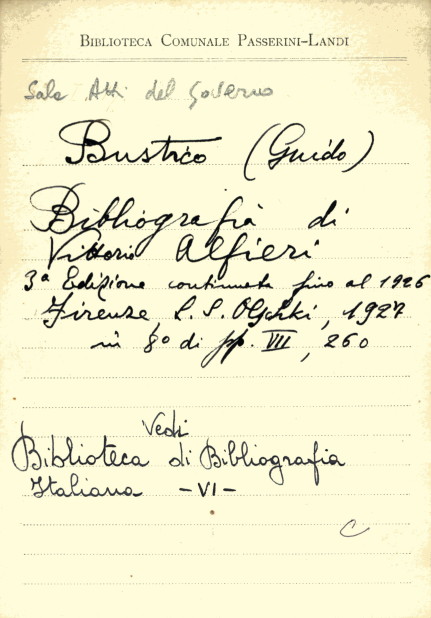 BIBLIOTECA COMUNALE PASSERINI-LANDI
Sala Atti del Governo
Bustico (Guido)
Bibliografia di
Vittorio Alfieri
3ª Edizione continuata fino al 1926
Firenze L. S. Olschki, 1927
in 8º di pp. VIII, 260
Vedi
Biblioteca di Bibliografia
Italiana - VI -
C